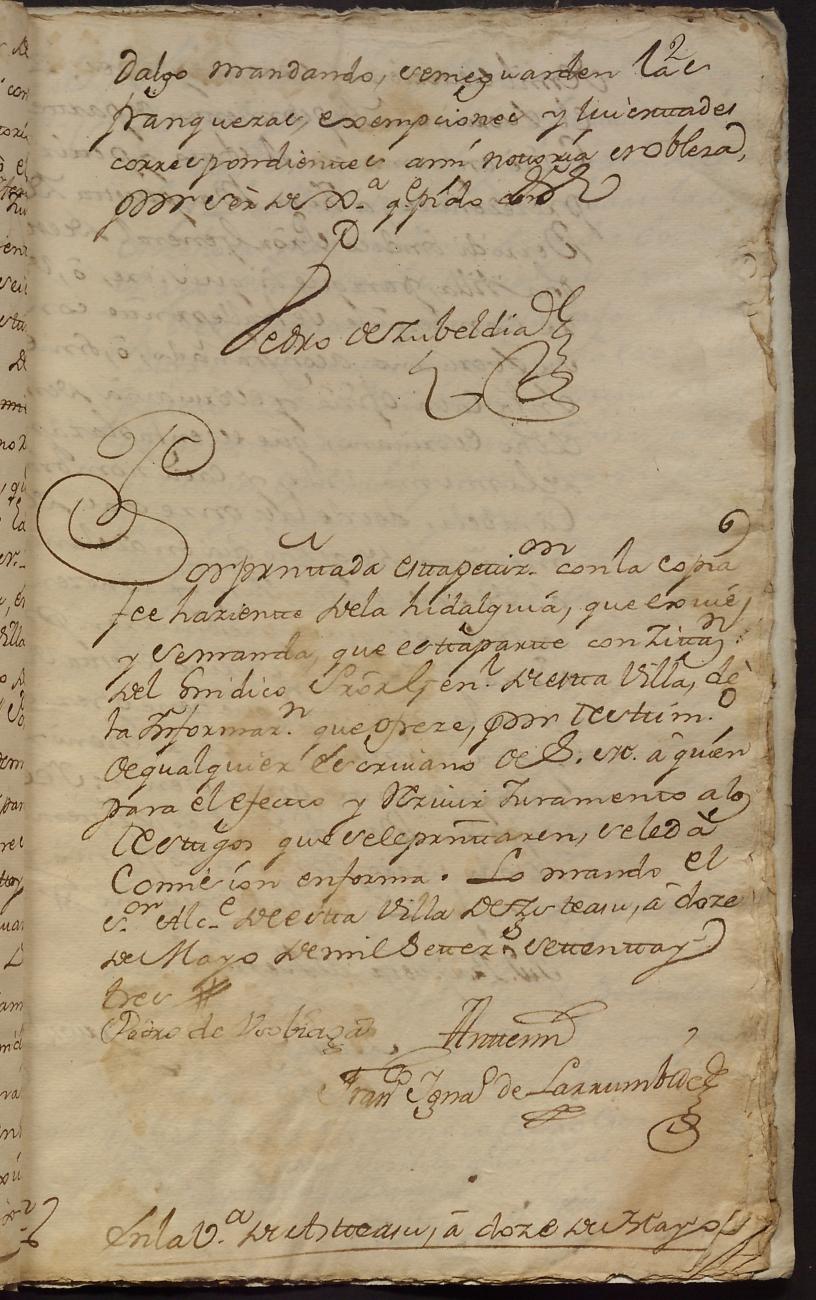 dalgo mandando, se me guarden las
franquezas, exempciones y livertades
correspondientes a mi notoria nobleza,
por ser de Jx.ª q.e pido con
Pedro de Zubeldia
Por presnttada esta petiz.on con la copia
fee haziente de la hidalguia, que exive,
y se manda, que esta parte con Zitta.n
del Sindico Prōr Gen.l de esta Villa, dè
la Informaz.n que ofreze, por testim.o
de qualquier Escrivano de S. M. â quien
para el efecto y Rezivir Juramento a los
testigos que se le presnttaren, se le dà
Comision en forma. Lo mando el
s.or Alc.e de esta Villa de Asteasu, â doze
de Mayo de mil Setez.s settenta y
tres
Pedro de
Antemi
Fran.co Igna.o de Larrumbide
En la V.ª de Asteasu, â doze de Mayo